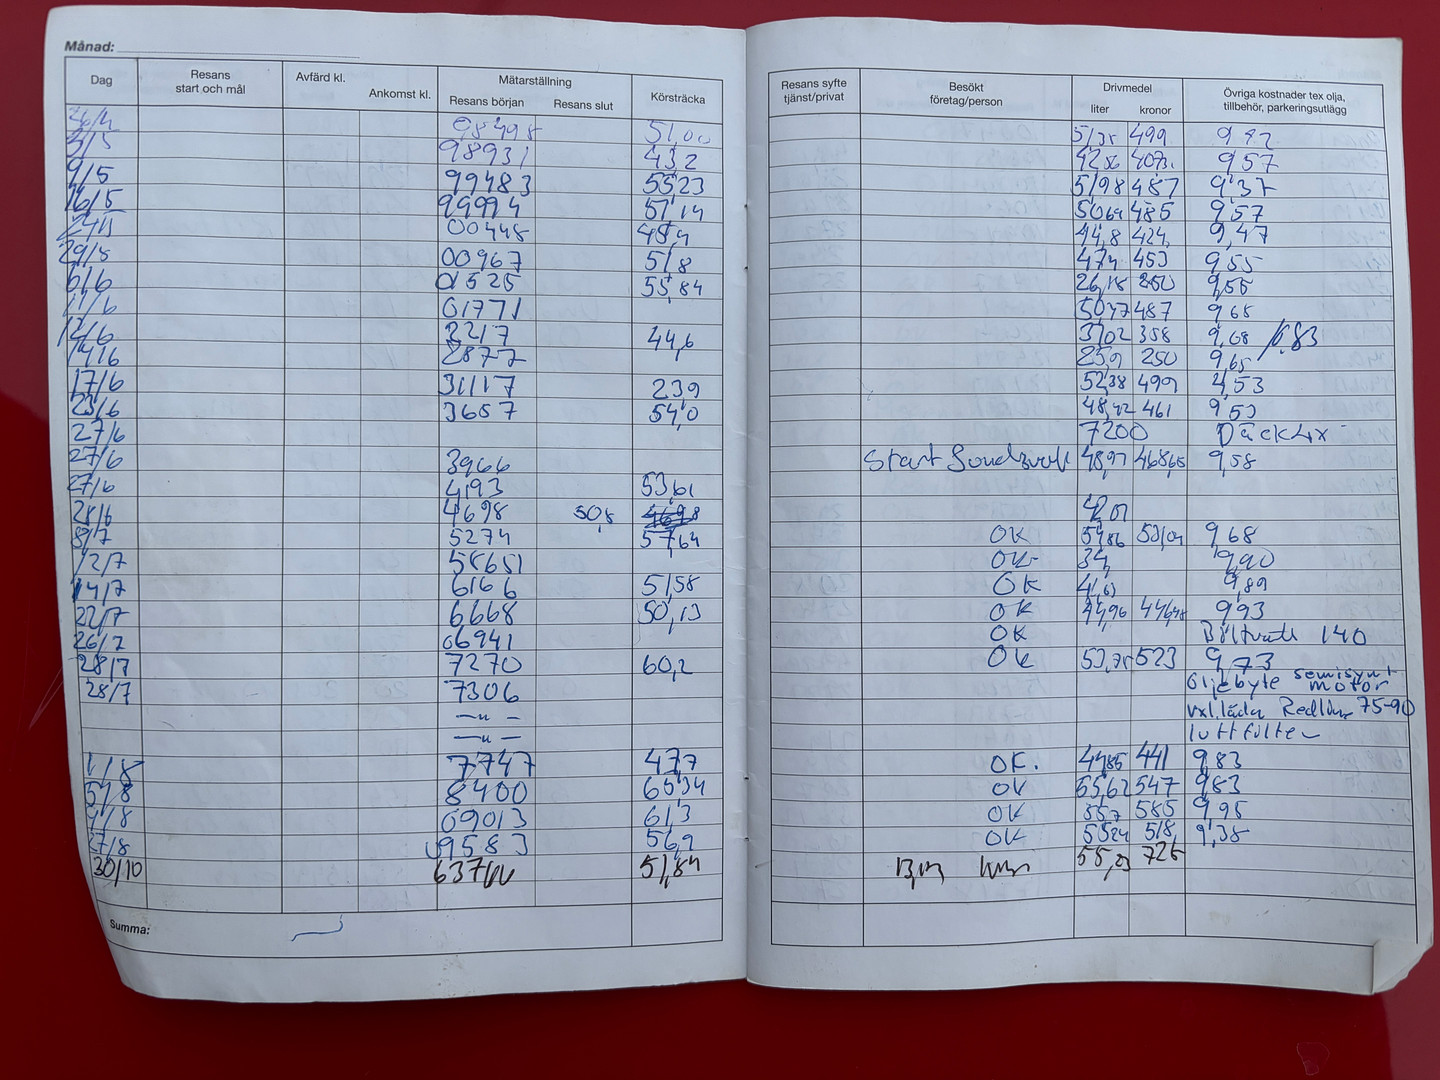 Månad:
Dag Resans start och mål Avfärd kl. Ankomst kl. Mätarställning Resans början Resans slut Körsträcka Resans syfte tjänst/privat Besökt företag/person Drivmedel liter kronor Övriga kostnader tex olja, tillbehör, parkeringsutlägg
98498 51,00 51,35 499
5/5 98931 43,2 9,57
9/5 99483 55,23 51,98 487 9,37
16/5 99994 51,14 50,64 485 9,57
00448 45,4 44,8 424, 9,47
29/5 00967 51,8 47,4 453 9,55
6/6 01525 55,84 26,18 250 9,55
11/6 01771 50,37 487 9,68
12/6 2217 44,6 37,02 358 9,68
14/6 2877 25,9 250 9,65
17/6 31117 239 52,38 499 4,53
23/6 3657 54,0 48,42 461 9,53
27/6 7200 Däck 4x
27/6 3966 Start Sundsvall 48,97 468,65 9,58
27/6 4193 53,61
28/6 4698 50,5
8/7 5274 57,64 OK 9,68
12/7 OK 9,90
14/7 6166 51,58 OK 9,89
22/7 6668 50,13 OK 44,96 9,93
26/7 06941 OK Biltvätt 140
28/7 7270 60,2 OK 53,75 523 9,73
28/7 7306 Oljebyte semisynt motor
—u— vxl.låda Redline 75-90
—u— luftfilter
1/8 7747 47,7 OK. 44,85 441 9,83
5/8 8400 65,34 OK 55,62 547 9,83
09013 61,3 OK 585 9,95
09583 56,9 OK 55,24 518, 9,38
30/10 51,84 55,23 725
Summa: